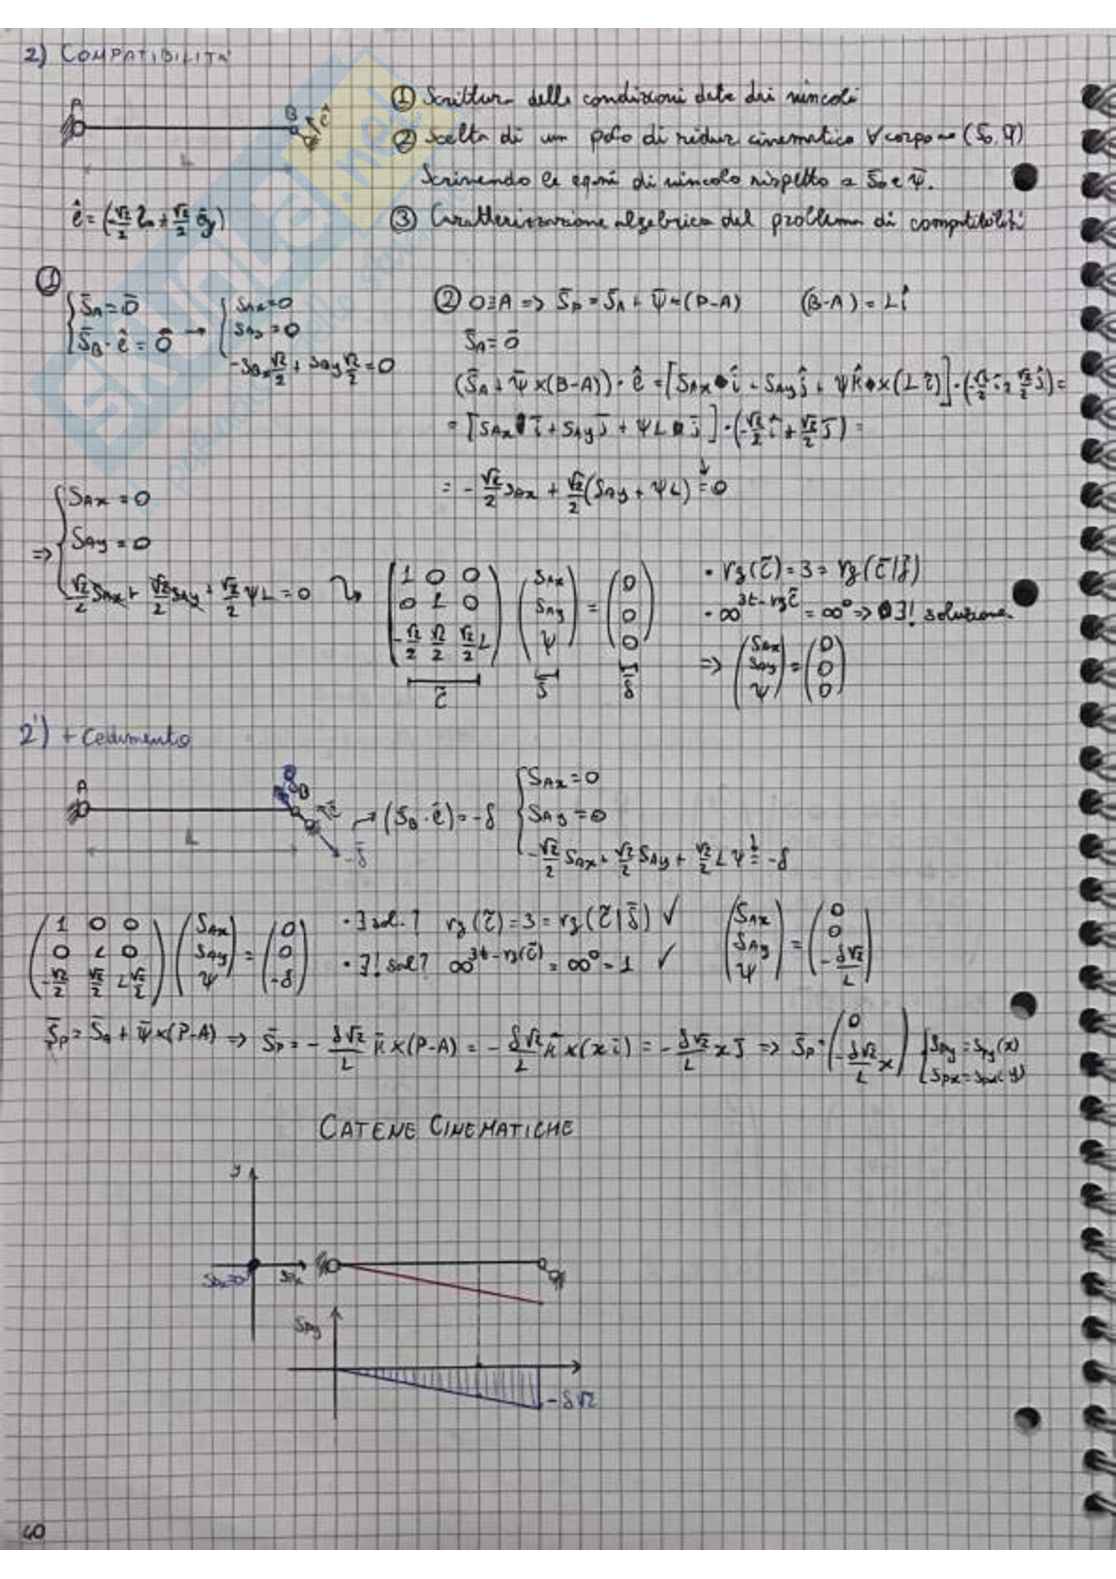 2) COMPATIBILITÀ
A B ê
L
ê = (-√2/2 êx + √2/2 êy)
① Scrittura delle condizioni date dai vincoli
② Scelta di un polo di riduz. cinematico ∀ corpo → (S̄o, Ψ̄)
Scrivendo le eqni di vincolo rispetto a S̄o e Ψ̄.
③ Caratterizzazione algebrica del problema di compatibilità
①
{ S̄A = 0̄
S̄B · ê = 0̄ → { SAx = 0
SAy = 0
-SBx √2/2 + SBy √2/2 = 0
② O≡A => S̄P = S̄A + Ψ̄ × (P-A) (B-A) = L î
S̄A = 0̄
(S̄A + Ψ̄ × (B-A)) · ê = [SAx î + SAy ĵ + Ψ k̂ × (L î)] · (-√2/2 î + √2/2 ĵ) =
= [SAx ī + SAy j̄ + ΨL j̄] · (-√2/2 ī + √2/2 j̄) =
= -√2/2 SAx + √2/2 (SAy + ΨL) = 0
=> { SAx = 0
SAy = 0
√2/2 SAx + √2/2 SAy + √2/2 ΨL = 0
(1 0 0
0 1 0
-√2/2 √2/2 √2/2 L) (SAx
SAy
Ψ) = (0
0
0)
C̄ S̄ δ̄
• rg(C̄) = 3 = rg(C̄|δ̄)
• ∞^(3t-rgC̄) = ∞⁰ => ∃! soluzione
=> (SAx
SAy
Ψ) = (0
0
0)
2') + Cedimento
A δ B ê
L
-δ̄
→ (S̄B · ê) = -δ
{ SAx = 0
SAy = 0
-√2/2 SAx + √2/2 SAy + √2/2 LΨ = -δ
(1 0 0
0 1 0
-√2/2 √2/2 L√2/2) (SAx
SAy
Ψ) = (0
0
-δ)
• ∃ sol.? rg(C̄) = 3 = rg(C̄|δ̄) ✓
• ∃! sol? ∞^(3t-rg(C̄)) = ∞⁰ = 1 ✓
(SAx
SAy
Ψ) = (0
0
-δ√2/L)
S̄P = S̄A + Ψ̄ × (P-A) => S̄P = -δ√2/L k̄ × (P-A) = -δ√2/L k̄ × (x ī) = -δ√2/L x j̄ => S̄P = (0
-δ√2/L x) { SPy = SPy(x)
SPx = SPx(y)
CATENE CINEMATICHE
y
SPx
SPy
-δ√2
40